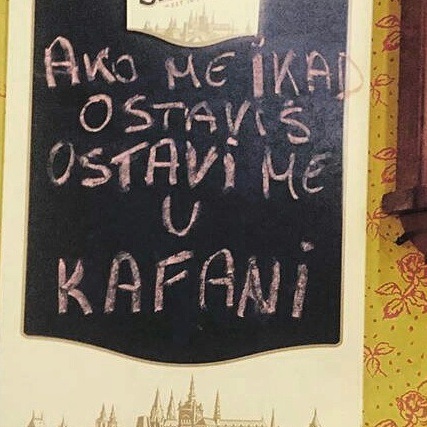 AKO ME IKAD
OSTAVIŠ
OSTAVI ME
U
KAFANI